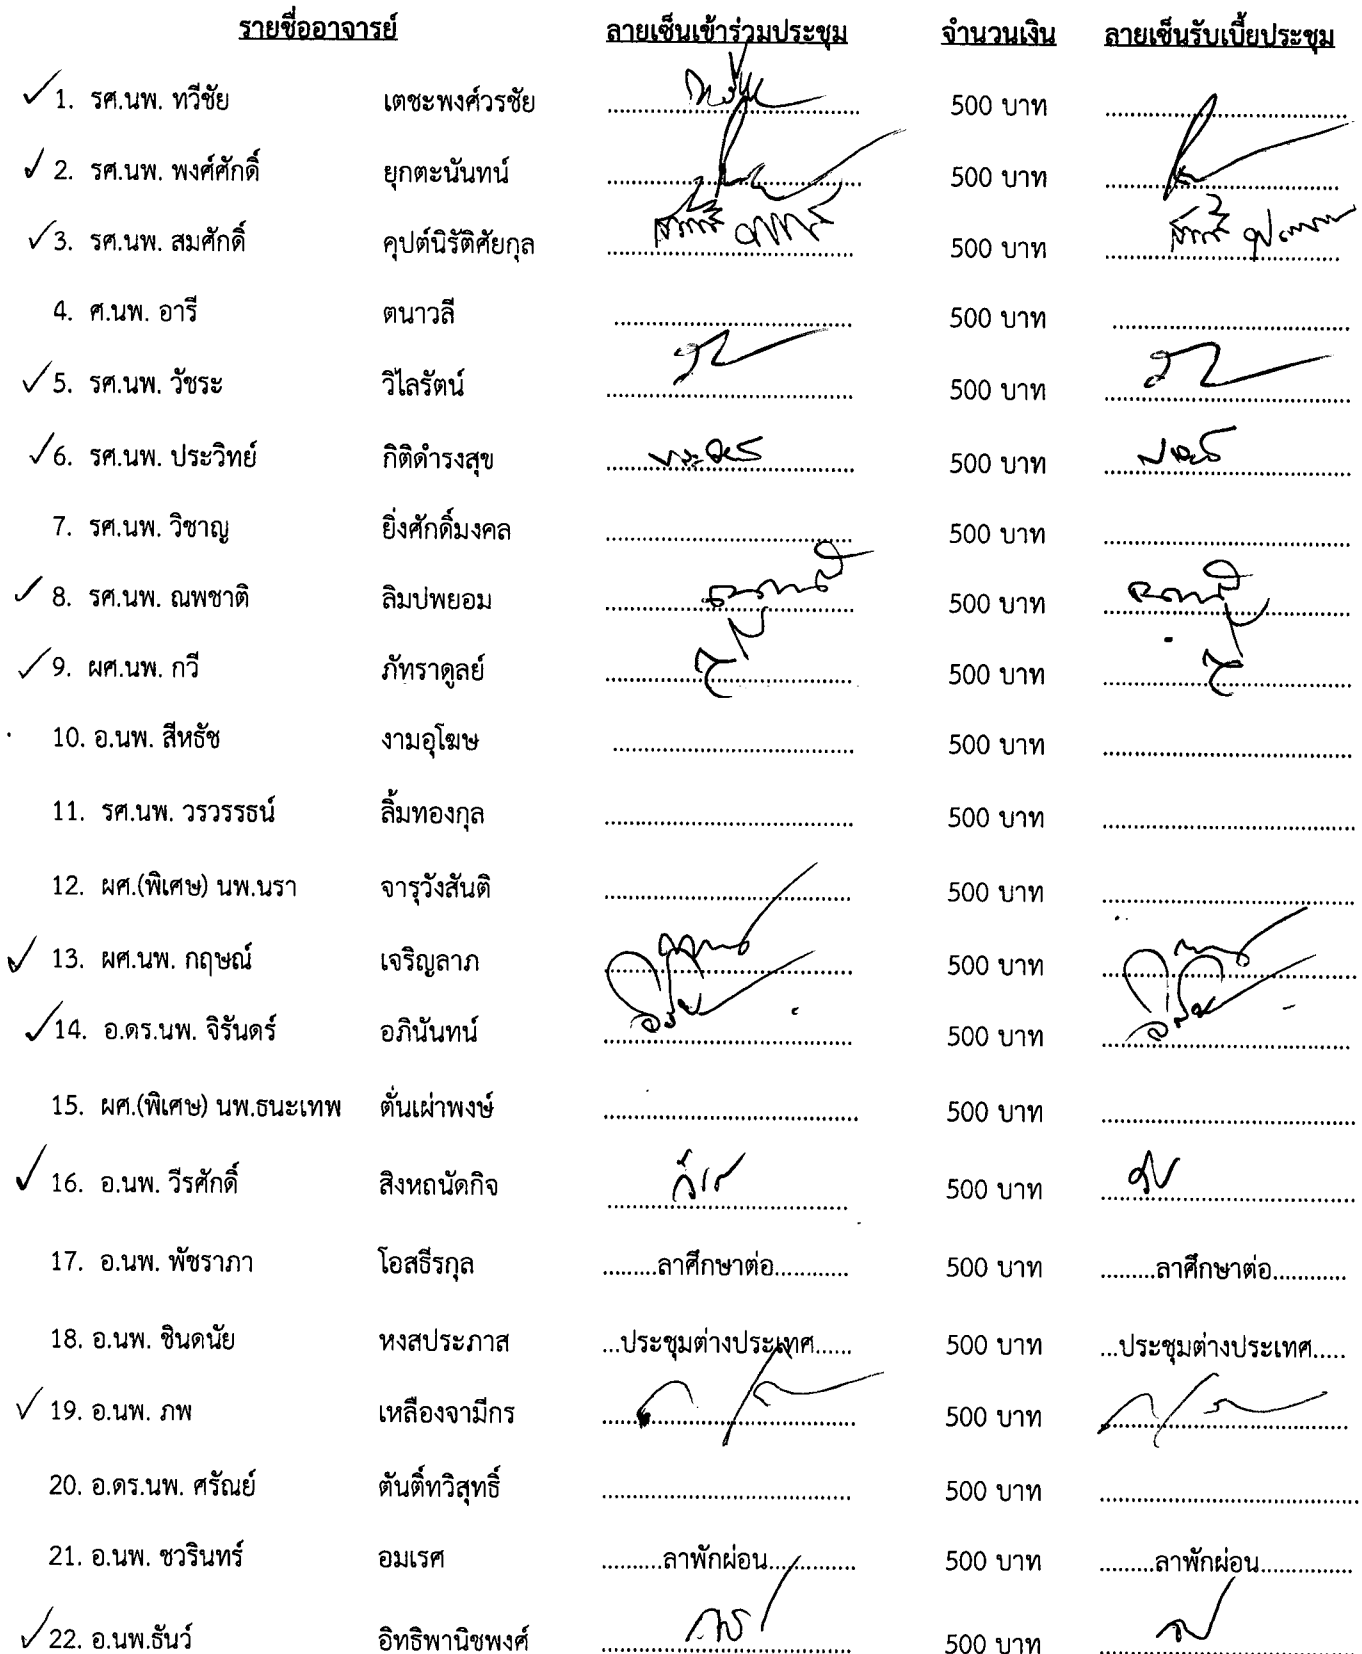 รายชื่ออาจารย์ ลายเซ็นเข้าร่วมประชุม จำนวนเงิน ลายเซ็นรับเบี้ยประชุม
✓ 1. รศ.นพ. ทวีชัย เตชะพงศ์วรชัย .......... 500 บาท ..........
✓ 2. รศ.นพ. พงศ์ศักดิ์ ยุกตะนันทน์ .......... 500 บาท ..........
✓ 3. รศ.นพ. สมศักดิ์ คุปต์นิรัติศัยกุล .......... 500 บาท ..........
4. ศ.นพ. อารี ตนาวลี .......... 500 บาท ..........
✓ 5. รศ.นพ. วัชระ วิไลรัตน์ .......... 500 บาท ..........
✓ 6. รศ.นพ. ประวิทย์ กิติดำรงสุข .......... 500 บาท ..........
7. รศ.นพ. วิชาญ ยิ่งศักดิ์มงคล .......... 500 บาท ..........
✓ 8. รศ.นพ. ณพชาติ ลิมปพยอม .......... 500 บาท ..........
✓ 9. ผศ.นพ. กวี ภัทราดูลย์ .......... 500 บาท ..........
10. อ.นพ. สีหธัช งามอุโฆษ .......... 500 บาท ..........
11. รศ.นพ. วรวรรธน์ ลิ้มทองกุล .......... 500 บาท ..........
12. ผศ.(พิเศษ) นพ.นรา จารุวังสันติ .......... 500 บาท ..........
✓ 13. ผศ.นพ. กฤษณ์ เจริญลาภ .......... 500 บาท ..........
✓ 14. อ.ดร.นพ. จิรันดร์ อภินันทน์ .......... 500 บาท ..........
15. ผศ.(พิเศษ) นพ.ธนะเทพ ตั่นเผ่าพงษ์ .......... 500 บาท ..........
✓ 16. อ.นพ. วีรศักดิ์ สิงหถนัดกิจ .......... 500 บาท ..........
17. อ.นพ. พัชราภา โอสธีรกุล .........ลาศึกษาต่อ............ 500 บาท .........ลาศึกษาต่อ............
18. อ.นพ. ชินดนัย หงสประภาส ...ประชุมต่างประเทศ...... 500 บาท ...ประชุมต่างประเทศ.....
✓ 19. อ.นพ. ภพ เหลืองจามีกร .......... 500 บาท ..........
20. อ.ดร.นพ. ศรัณย์ ตันติ์ทวิสุทธิ์ .......... 500 บาท ..........
21. อ.นพ. ชวรินทร์ อมเรศ ..........ลาพักผ่อน.............. 500 บาท .........ลาพักผ่อน...............
✓ 22. อ.นพ.ธันว์ อิทธิพานิชพงศ์ .......... 500 บาท ..........